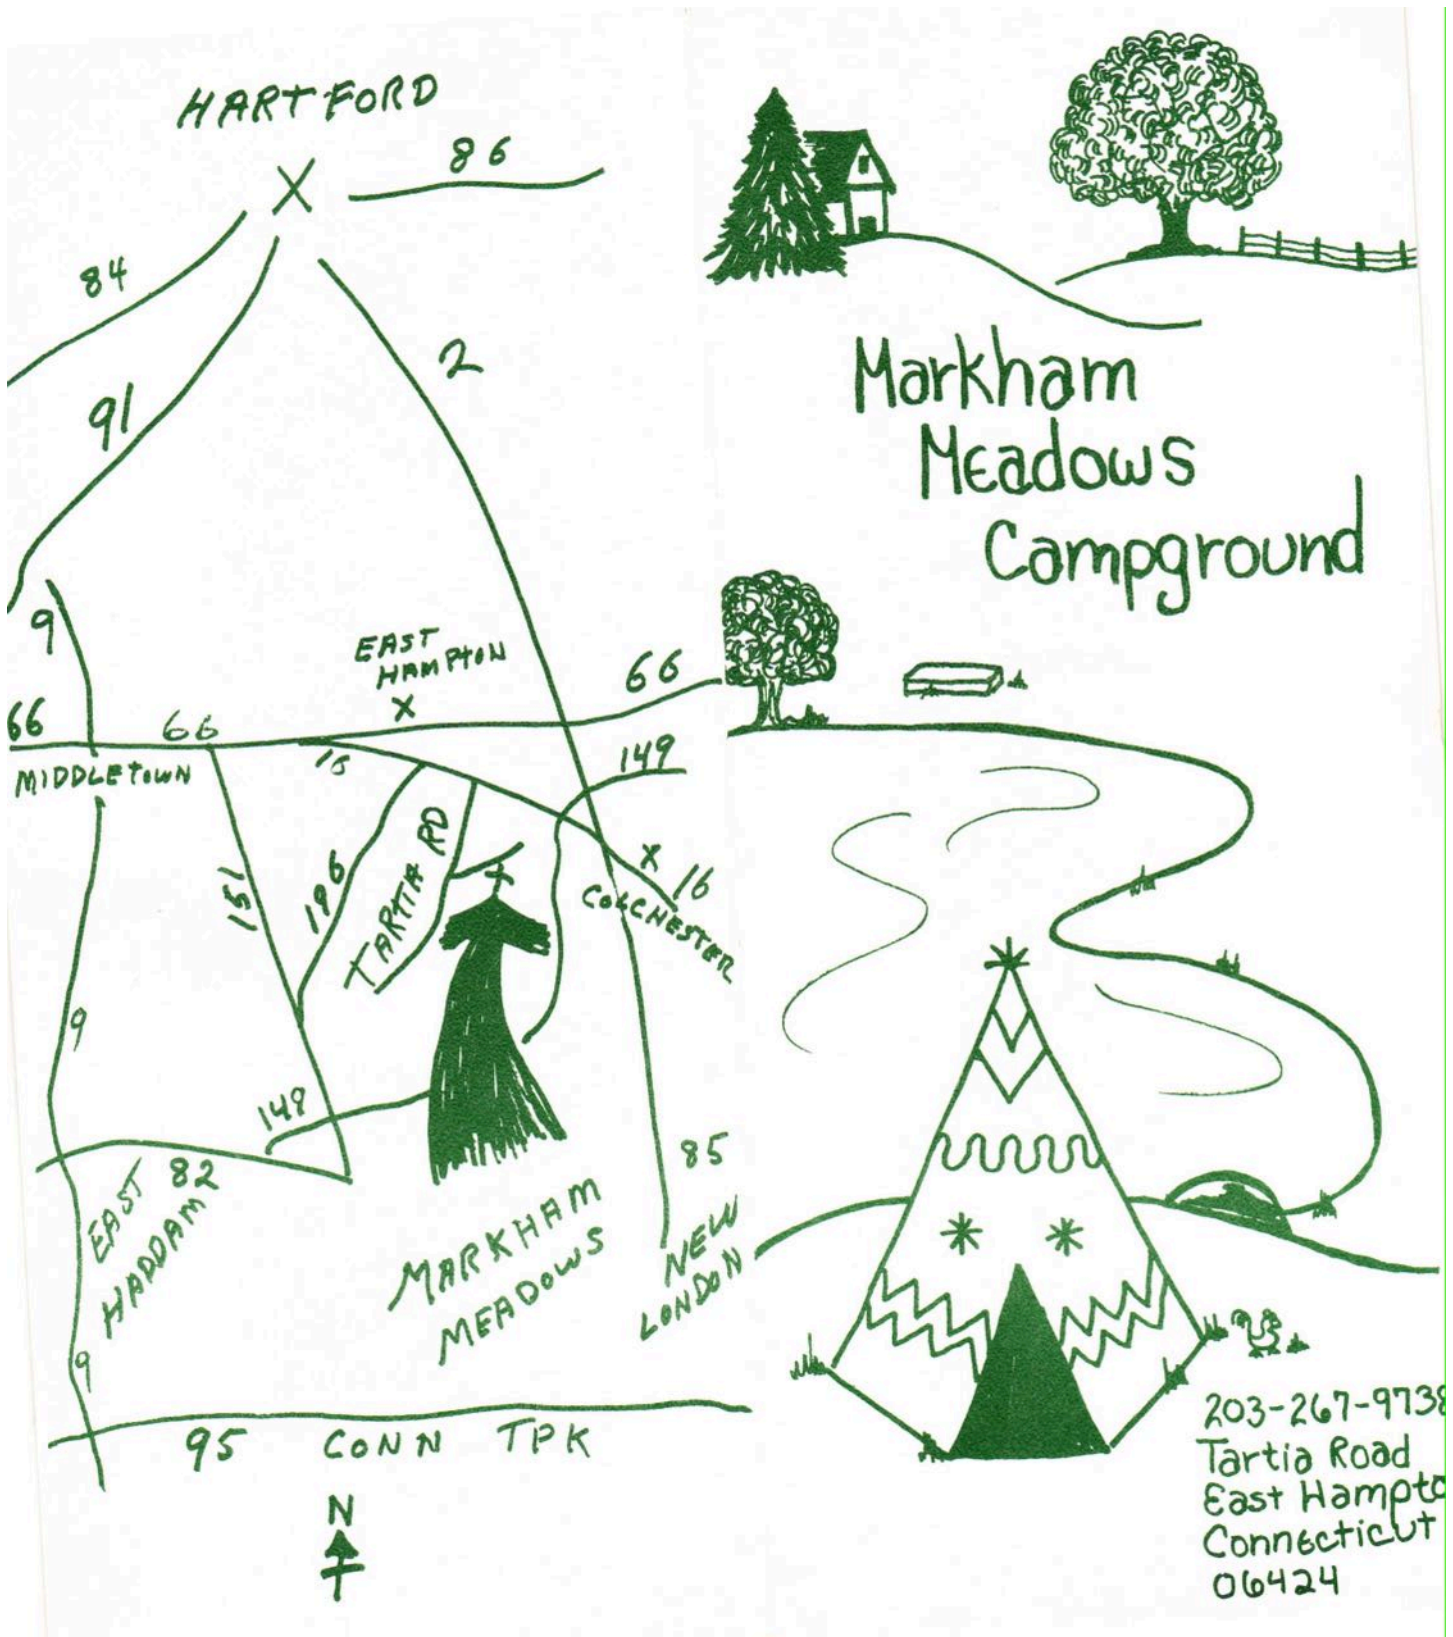 HARTFORD
86
84
2
91
9
EAST
HAMPTON
66
66
66
16
MIDDLETOWN
149
TARTIA RD
151
196
16
COLCHESTER
9
149
82
85
EAST
HADDAM
MARKHAM
MEADOWS
NEW
LONDON
9
95 CONN TPK
N
Markham
Meadows
Campground
203-267-9738
Tartia Road
East Hampto
Connecticut
06424